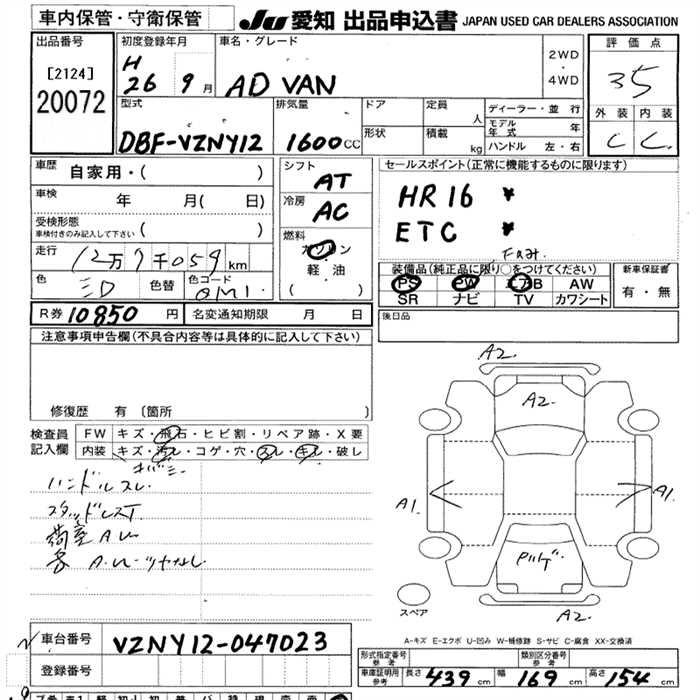 車内保管・守衛保管 JU 愛知 出品申込書 JAPAN USED CAR DEALERS ASSOCIATION
出品番号 初度登録年月 車名・グレード 2WD・4WD 評価点
[2124] H 26 9月 AD VAN 35
20072
外装 内装
C C
型式 排気量 ドア 定員 人 ディーラー・並行
DBF-VZNY12 1600CC 形状 積載 kg モデル年式 年
ハンドル 左・右
車歴 自家用・( ) シフト AT セールスポイント(正常に機能するものに限ります)
車検 年 月(日) 冷房 AC HR16
受検形態 車検付きのみ記入して下さい ( ) ETC
走行 12万7千059km 燃料 ガソリン・軽油 ( )
色 色替 色コード
装備品(純正品に限り○をつけてください) 新車保証書
PS PW エアB AW 有・無
SR ナビ TV カワシート
R券 10850円 名変通知期限 月 日 後日品
注意事項申告欄(不具合内容等は具体的に記入して下さい)
修復歴 有 〔箇所 〕
検査員記入欄 FW キズ・飛石・ヒビ割・リペア跡・X要
内装 キズ・汚レ・コゲ・穴・スレ・キレ・破レ
ハンドルスレ
スタッドレスT
A2.
A2.
A1.
A1.
A2.
スペア
A-キズ E-エクボ U-凹み W-補修跡 S-サビ C-腐食 XX-交換済
車台番号 VZNY12-047023
登録番号
形式指定番号 参考 類別区分番号 参考
車庫証明用 参考 長さ 439cm 幅 169cm 高さ 154cm